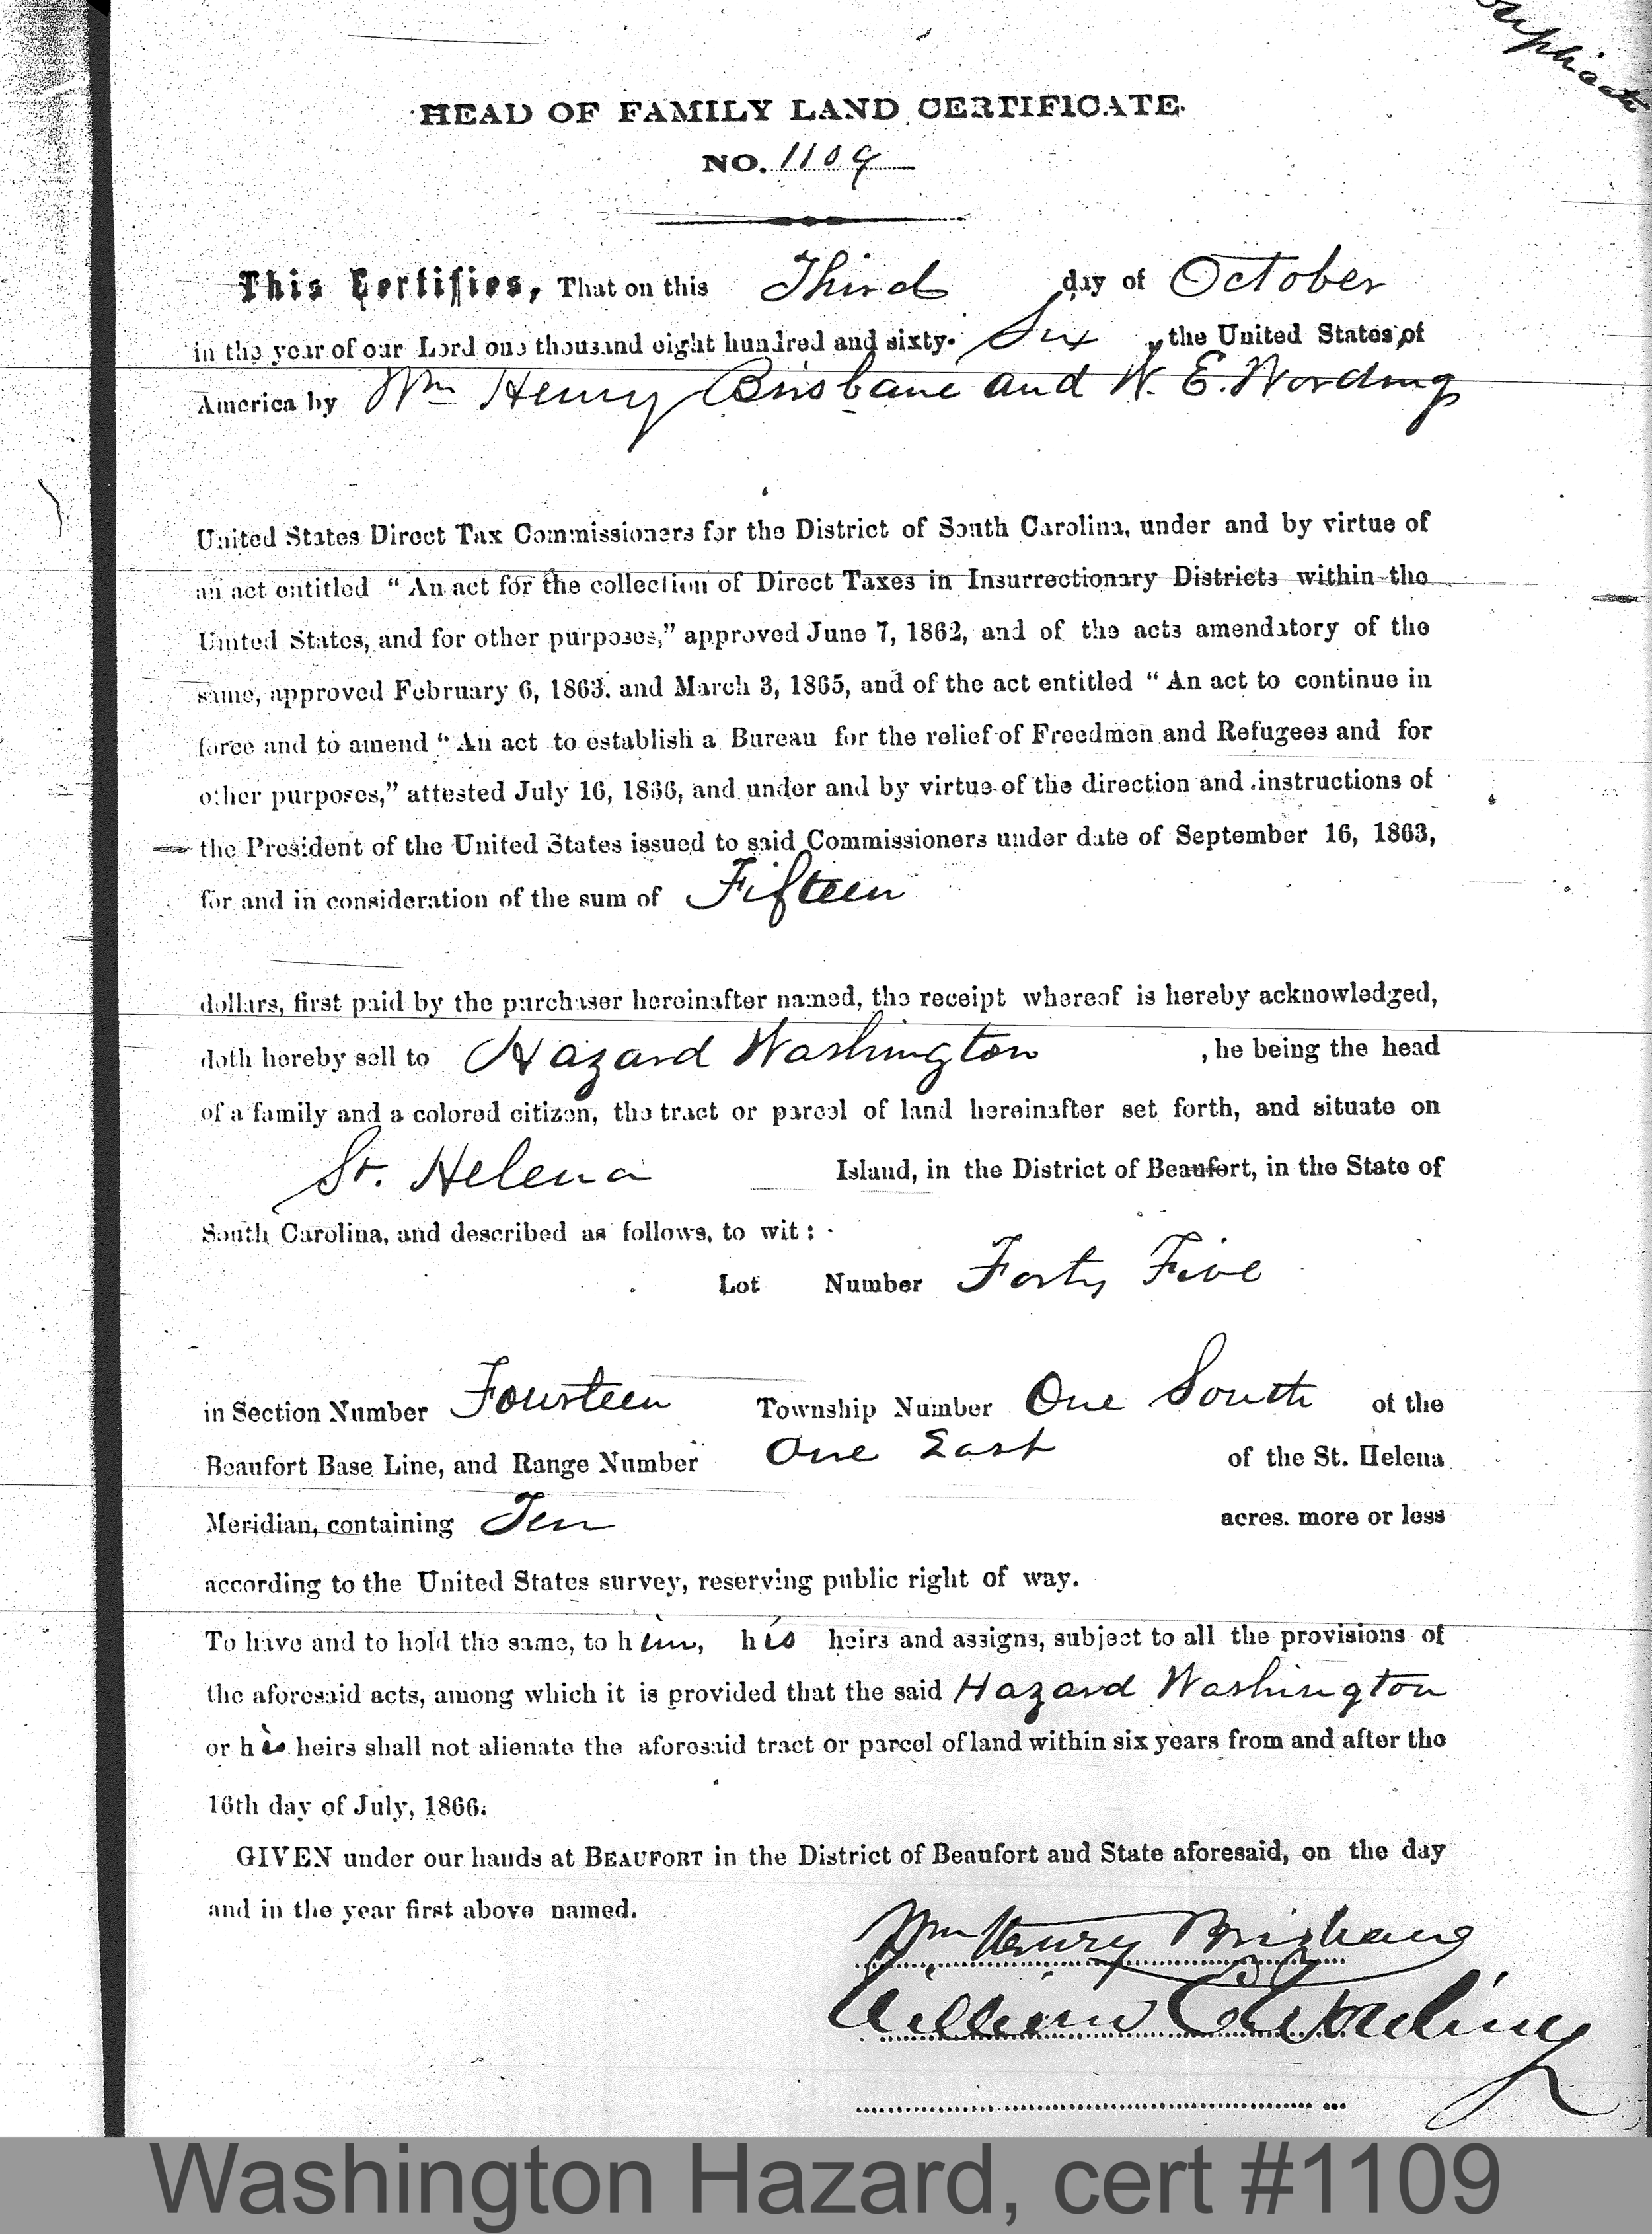 Duplicate
HEAD OF FAMILY LAND CERTIFICATE.
NO. 1109
This Certifies, That on this Third day of October
in the year of our Lord one thousand eight hundred and sixty- Six, the United States of
America by Wm Henry Brisbane and W. E. Wording
United States Direct Tax Commissioners for the District of South Carolina, under and by virtue of
an act entitled "An act for the collection of Direct Taxes in Insurrectionary Districts within the
United States, and for other purposes," approved June 7, 1862, and of the acts amendatory of the
same, approved February 6, 1863. and March 3, 1865, and of the act entitled "An act to continue in
force and to amend "An act to establish a Bureau for the relief of Freedmen and Refugees and for
other purposes," attested July 16, 1866, and under and by virtue of the direction and instructions of
the President of the United States issued to said Commissioners under date of September 16, 1863,
for and in consideration of the sum of Fifteen
dollars, first paid by the purchaser hereinafter named, the receipt whereof is hereby acknowledged,
doth hereby sell to Hazard Washington, he being the head
of a family and a colored citizen, the tract or parcel of land hereinafter set forth, and situate on
St. Helena Island, in the District of Beaufort, in the State of
South Carolina, and described as follows, to wit:
Lot Number Forty Five
in Section Number Fourteen Township Number One South of the
Beaufort Base Line, and Range Number One East of the St. Helena
Meridian, containing Ten acres. more or less
according to the United States survey, reserving public right of way.
To have and to hold the same, to him, his heirs and assigns, subject to all the provisions of
the aforesaid acts, among which it is provided that the said Hazard Washington
or his heirs shall not alienate the aforesaid tract or parcel of land within six years from and after the
16th day of July, 1866.
GIVEN under our hands at BEAUFORT in the District of Beaufort and State aforesaid, on the day
and in the year first above named.
Wm Henry Brisbane
William E. Wording
Washington Hazard, cert #1109